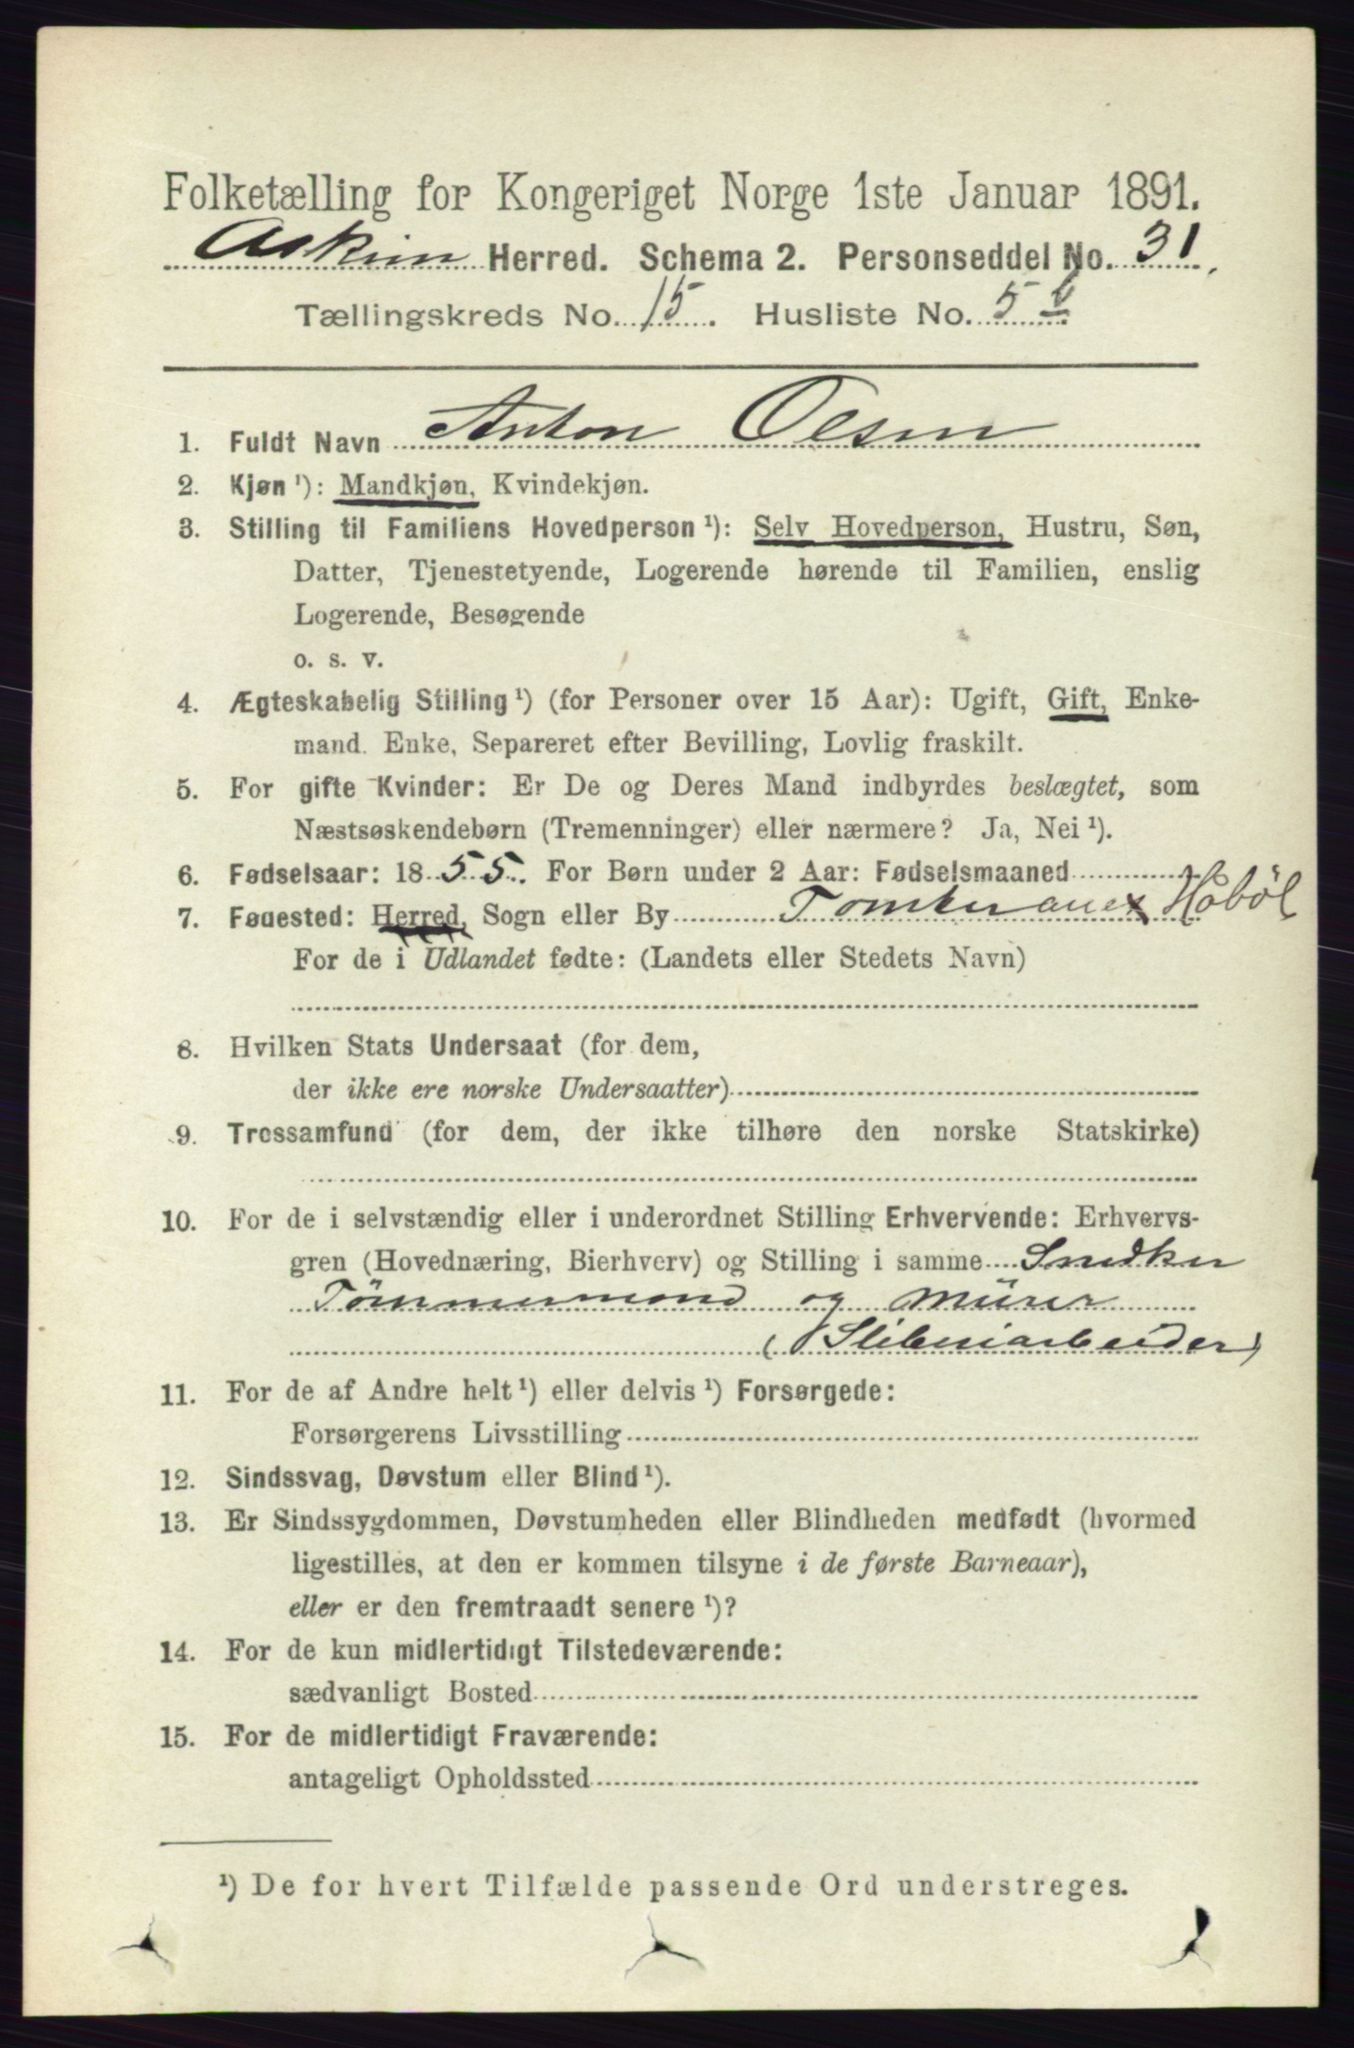 Folketælling for Kongeriget Norge 1ste Januar 1891.
Askim Herred. Schema 2. Personseddel No. 31.
Tællingskreds No. 15. Husliste No. 5 b
1. Fuldt Navn Anton Olsen
2. Kjøn ¹): Mandkjøn, Kvindekjøn.
3. Stilling til Familiens Hovedperson ¹): Selv Hovedperson, Hustru, Søn,
Datter, Tjenestetyende, Logerende hørende til Familien, enslig
Logerende, Besøgende
o. s. v.
4. Ægteskabelig Stilling ¹) (for Personer over 15 Aar): Ugift, Gift, Enke-
mand. Enke, Separeret efter Bevilling, Lovlig fraskilt.
5. For gifte Kvinder: Er De og Deres Mand indbyrdes beslægtet, som
Næstsøskendebørn (Tremenninger) eller nærmere? Ja, Nei ¹).
6. Fødselsaar: 1855. For Børn under 2 Aar: Fødselsmaaned
7. Fødested: Herred, Sogn eller By Tomter anex Hobøl
For de i Udlandet fødte: (Landets eller Stedets Navn)
8. Hvilken Stats Undersaat (for dem,
der ikke ere norske Undersaatter)
9. Trossamfund (for dem, der ikke tilhøre den norske Statskirke)
10. For de i selvstændig eller i underordnet Stilling Erhvervende: Erhvervs-
gren (Hovednæring, Bierhverv) og Stilling i samme Snedker
Tömmermand og Mürer
(Sliberiarbeider)
11. For de af Andre helt ¹) eller delvis ¹) Forsørgede:
Forsørgerens Livsstilling
12. Sindssvag, Døvstum eller Blind ¹).
13. Er Sindssygdommen, Døvstumheden eller Blindheden medfødt (hvormed
ligestilles, at den er kommen tilsyne i de første Barneaar),
eller er den fremtraadt senere ¹)?
14. For de kun midlertidigt Tilstedeværende:
sædvanligt Bosted
15. For de midlertidigt Fraværende:
antageligt Opholdssted
¹) De for hvert Tilfælde passende Ord understreges.